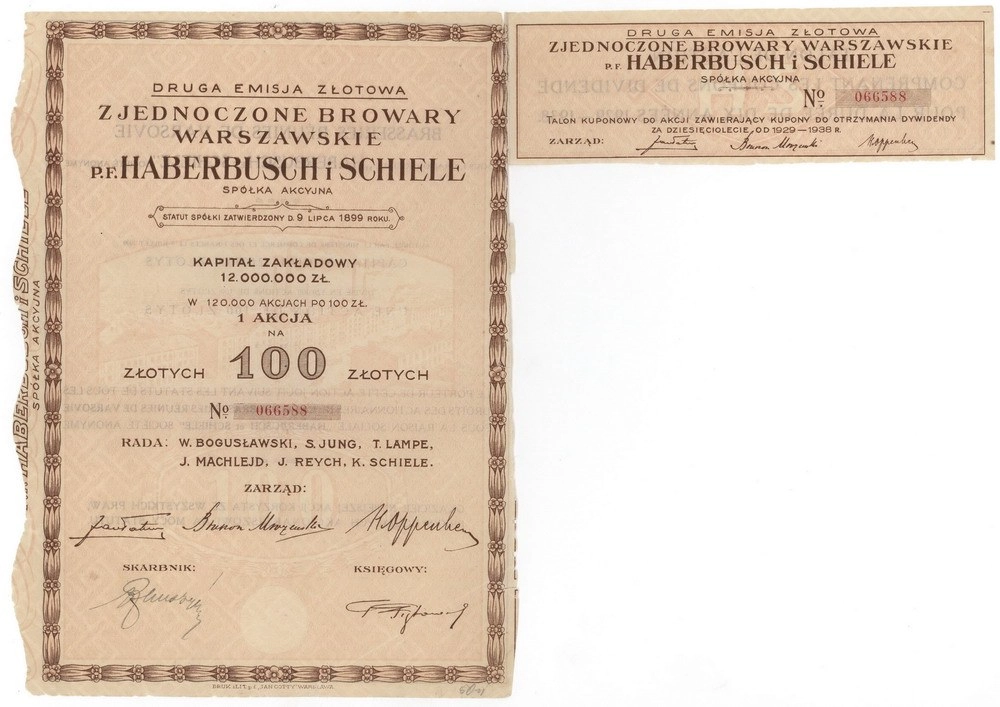 DRUGA EMISJA ZŁOTOWA
ZJEDNOCZONE BROWARY
WARSZAWSKIE
P.F. HABERBUSCH i SCHIELE
SPÓŁKA AKCYJNA
STATUT SPÓŁKI ZATWIERDZONY D. 9 LIPCA 1899 ROKU.
KAPITAŁ ZAKŁADOWY
12.000.000 ZŁ.
W 120.000 AKCJACH PO 100 ZŁ.
1 AKCJA
NA
ZŁOTYCH 100 ZŁOTYCH
No 066588
RADA: W. BOGUSŁAWSKI, S. JUNG, T. LAMPE,
J. MACHLEJD, J. REYCH, K. SCHIELE.
ZARZĄD:
SKARBNIK: KSIĘGOWY:
HABERBUSCH i SCHIELE
SPÓŁKA AKCYJNA
DRUGA EMISJA ZŁOTOWA
ZJEDNOCZONE BROWARY WARSZAWSKIE
P.F. HABERBUSCH i SCHIELE
SPÓŁKA AKCYJNA
No 066588
TALON KUPONOWY DO AKCJI ZAWIERAJĄCY KUPONY DO OTRZYMANIA DYWIDENDY
ZA DZIESIĘCIOLECIE, OD 1929–1938 R.
ZARZĄD: